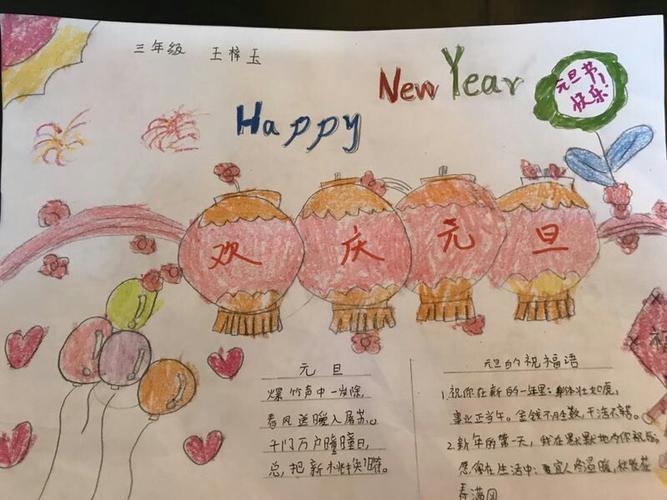 三年级 王梓玉
New Year
Happy
元旦节
快乐!
欢 庆 元 旦
元 旦
爆竹声中一岁除,
春风送暖入屠苏。
千门万户瞳瞳日,
总把新桃换旧符。
元旦的祝福语
1.祝你在新的一年里:身体壮如虎,
事业正当午。金钱不胜数,干活不辞
2.新年的第一天,我在默默地为你祝福,
您能在生活中:宜人的温暖,
春满园
福